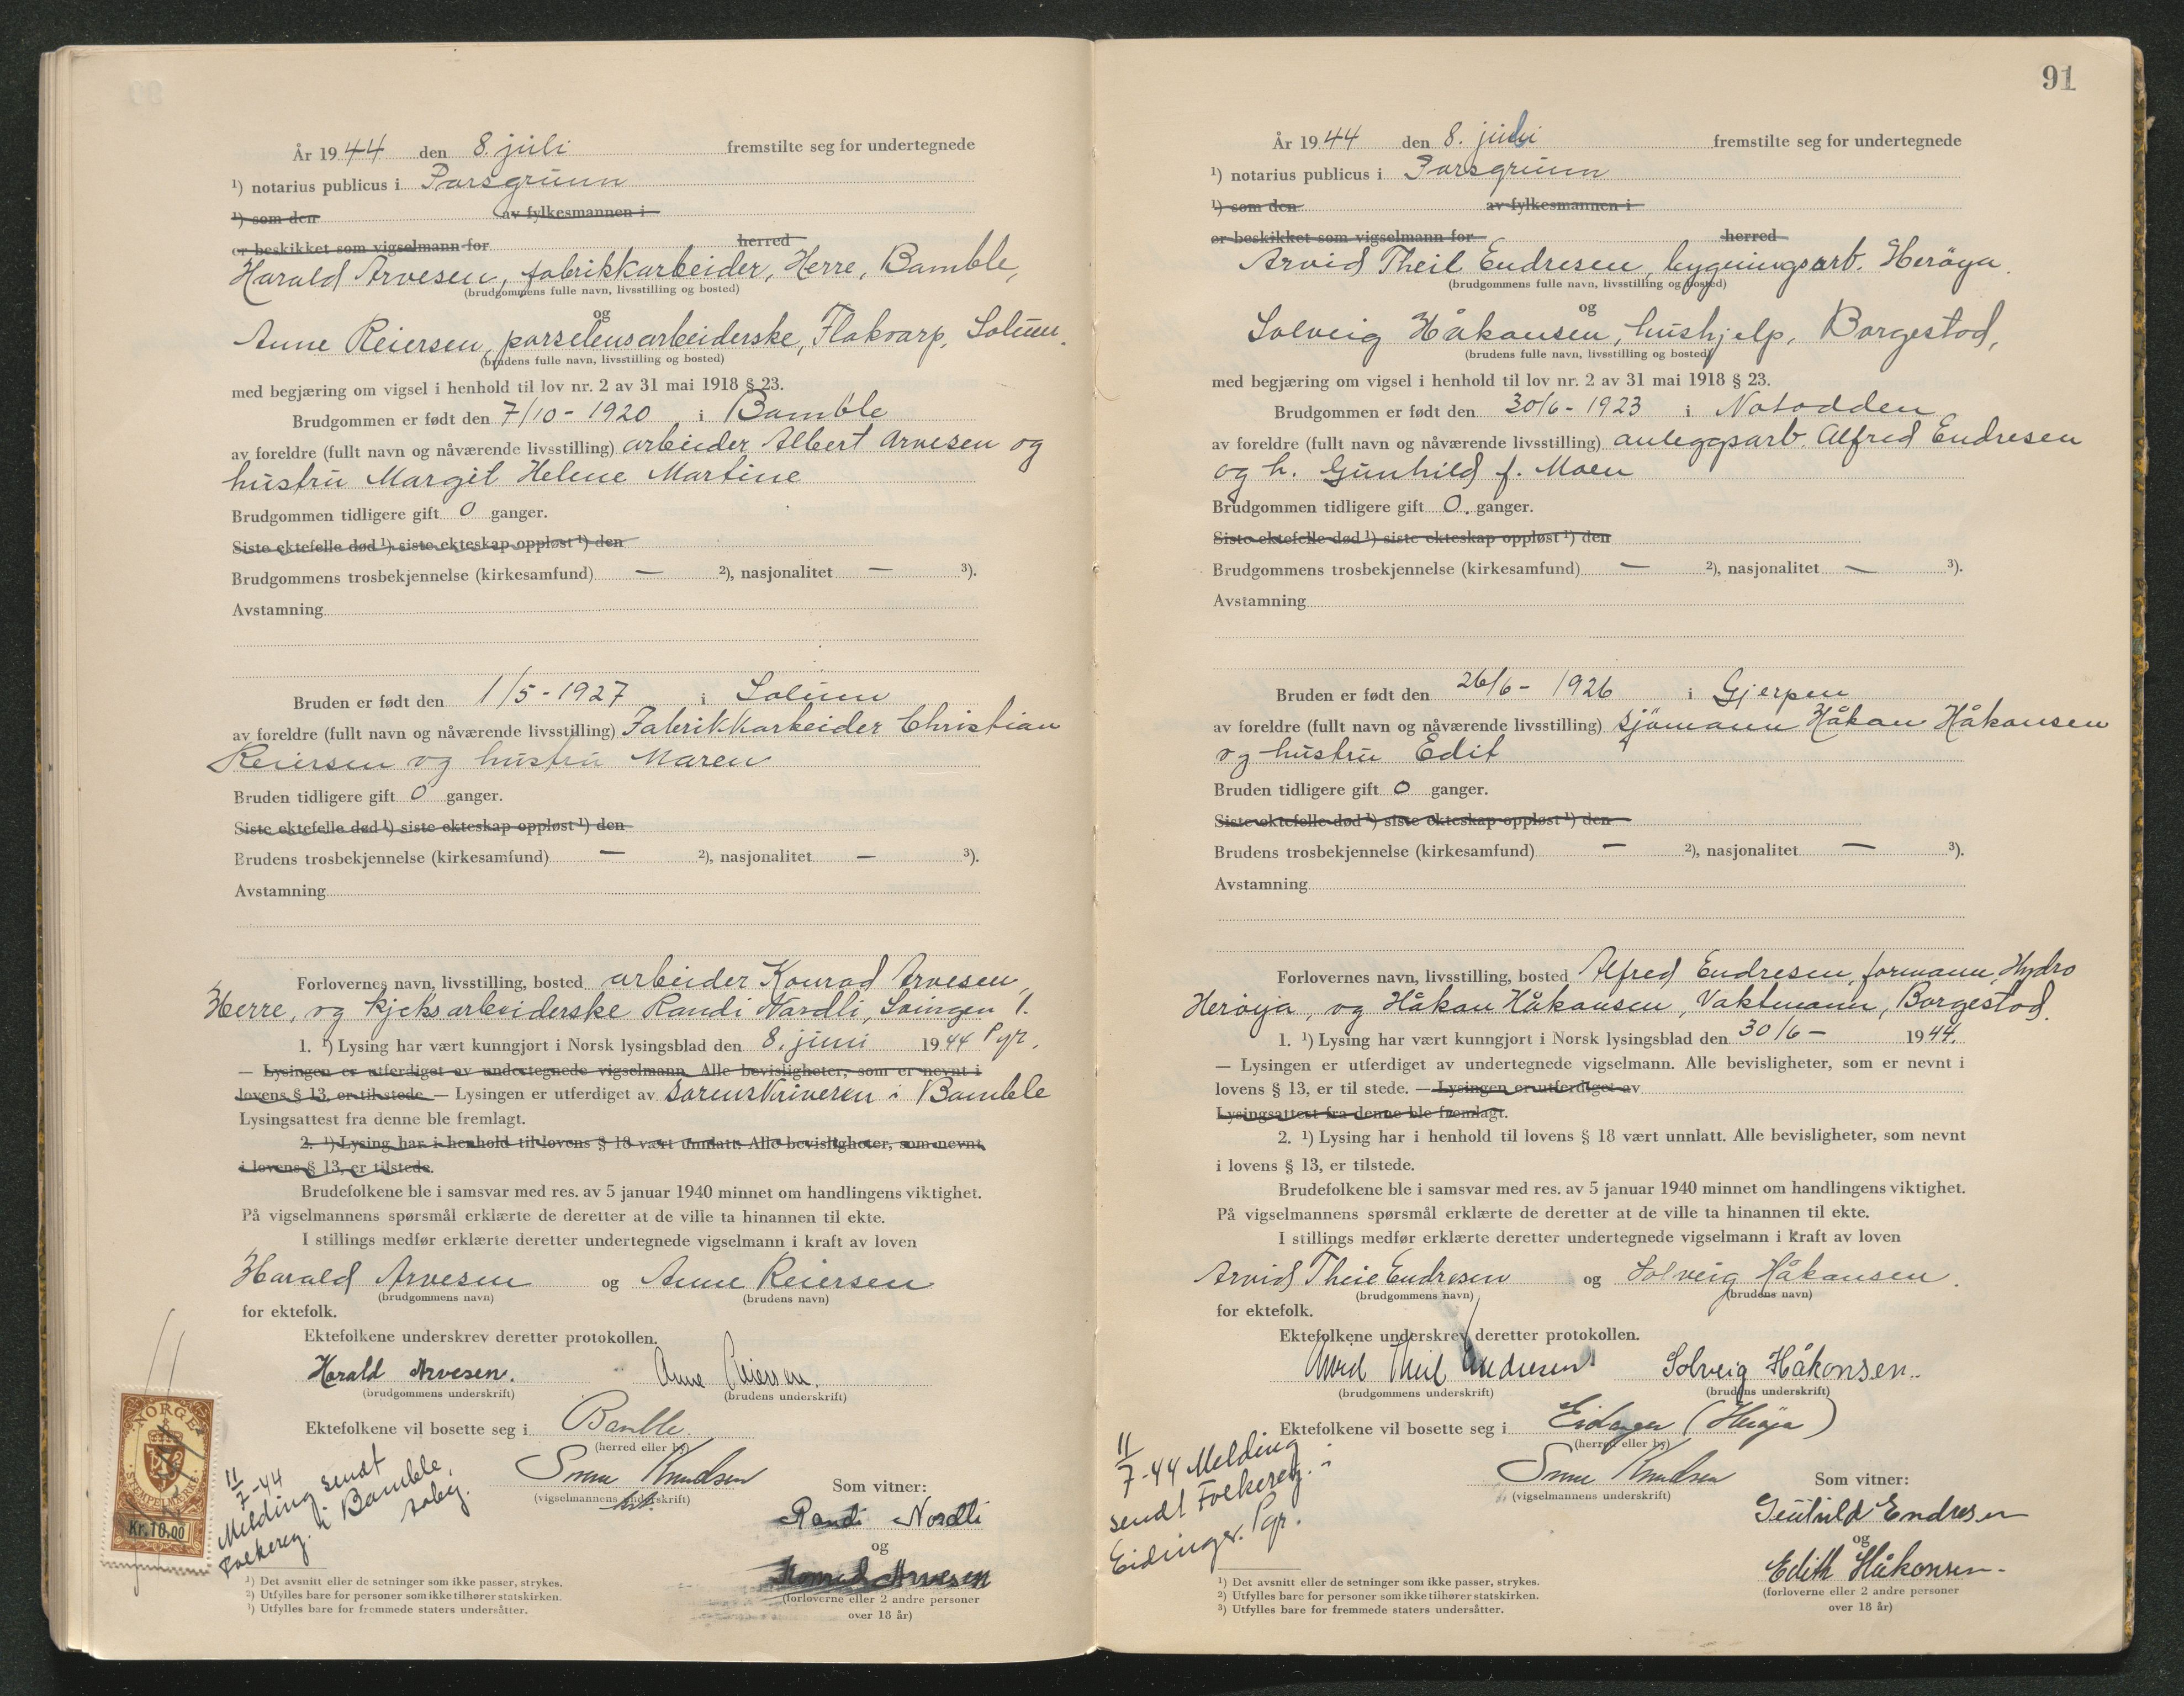 År 1944 den 8. juli fremstilte seg for undertegnede
¹) notarius publicus i Porsgrunn
¹) som den av fylkesmannen i
er beskikket som vigselmann for herred
Harald Arvesen, fabrikkarbeider, Herre, Bamble,
(brudgommens fulle navn, livsstilling og bosted)
og
Anne Reiersen, porselensarbeiderske, Flakvarp, Solum.
(brudens fulle navn, livsstilling og bosted)
med begjæring om vigsel i henhold til lov nr. 2 av 31 mai 1918 § 23.
Brudgommen er født den 7/10 - 1920 i Bamble
av foreldre (fullt navn og nåværende livsstilling) arbeider Albert Arvesen og
hustru Margit Helene Martine
Brudgommen tidligere gift 0 ganger.
Siste ektefelle død ¹) siste ekteskap oppløst ¹) den
Brudgommens trosbekjennelse (kirkesamfund) — ²), nasjonalitet — ³).
Avstamning
Bruden er født den 1/5 - 1927 i Solum
av foreldre (fullt navn og nåværende livsstilling) Fabrikkarbeider Christian
Reiersen og hustru Maren
Bruden tidligere gift 0 ganger.
Siste ektefelle død ¹) siste ekteskap oppløst ¹) den
Brudens trosbekjennelse (kirkesamfund) — ²), nasjonalitet — ³).
Avstamning
Forlovernes navn, livsstilling, bosted arbeider Konrad Arvesen,
Herre, og kjeksarbeiderske Randi Nordli, Svingen 1.
Pgr.
1. ¹) Lysing har vært kunngjort i Norsk lysingsblad den 8. juni 1944
— Lysingen er utferdiget av undertegnede vigselmann. Alle bevisligheter, som er nevnt i
lovens § 13, er til stede. — Lysingen er utferdiget av sorenskriveren i Bamble
Lysingsattest fra denne ble fremlagt.
2. ¹) Lysing har i henhold til lovens § 18 vært unnlatt. Alle bevisligheter, som nevnt
i lovens § 13, er tilstede.
Brudefolkene ble i samsvar med res. av 5 januar 1940 minnet om handlingens viktighet.
På vigselmannens spørsmål erklærte de deretter at de ville ta hinannen til ekte.
I stillings medfør erklærte deretter undertegnede vigselmann i kraft av loven
Harald Arvesen og Anne Reiersen
(brudgommens navn) (brudens navn)
for ektefolk.
Ektefolkene underskrev deretter protokollen.
Harald Arvesen. Anne Reiersen.
(brudgommens underskrift) (brudens underskrift)
Ektefolkene vil bosette seg i Bamble.
(herred eller by)
Knudsen
(vigselmannens underskrift)
Som vitner:
Randi Nordli
og
Konrad Arvesen
(forloverne eller 2 andre personer
over 18 år)
NORGE
STEMPELMERKE
Kr. 10,00
11/7-44
Melding sendt
Folkereg. i Bamble,
¹) Det avsnitt eller de setninger som ikke passer, strykes.
²) Utfylles bare for personer som ikke tilhører statskirken.
³) Utfylles bare for fremmede staters undersåtter.
91
År 1944 den 8. juli fremstilte seg for undertegnede
¹) notarius publicus i Porsgrunn
¹) som den av fylkesmannen i
er beskikket som vigselmann for herred
Arvid Theil Endresen, bygningsarb. Herøya.
(brudgommens fulle navn, livsstilling og bosted)
og
Solveig Håkansen, hushjelp, Borgestad,
(brudens fulle navn, livsstilling og bosted)
med begjæring om vigsel i henhold til lov nr. 2 av 31 mai 1918 § 23.
Brudgommen er født den 30/6 - 1923 i Notodden
av foreldre (fullt navn og nåværende livsstilling) anleggsarb. Alfred Endresen
og h. Gunhild f. Moen
Brudgommen tidligere gift 0. ganger.
Siste ektefelle død ¹) siste ekteskap oppløst ¹) den
Brudgommens trosbekjennelse (kirkesamfund) — ²), nasjonalitet — ³).
Avstamning
Bruden er født den 26/6 - 1926 i Gjerpen
av foreldre (fullt navn og nåværende livsstilling) sjömann Håkan Håkansen
og hustru Edit
Bruden tidligere gift 0 ganger.
Siste ektefelle død ¹) siste ekteskap oppløst ¹) den
Brudens trosbekjennelse (kirkesamfund) — ²), nasjonalitet — ³).
Avstamning
Forlovernes navn, livsstilling, bosted Alfred Endresen, formann, Hydro
Herøya, og Håkan Håkansen, Vaktmann, Borgestad.
1. ¹) Lysing har vært kunngjort i Norsk lysingsblad den 30/6 - 1944.
— Lysingen er utferdiget av undertegnede vigselmann. Alle bevisligheter, som er nevnt i
lovens § 13, er til stede. — Lysingen er utferdiget av
Lysingsattest fra denne ble fremlagt.
2. ¹) Lysing har i henhold til lovens § 18 vært unnlatt. Alle bevisligheter, som nevnt
i lovens § 13, er tilstede.
Brudefolkene ble i samsvar med res. av 5 januar 1940 minnet om handlingens viktighet.
På vigselmannens spørsmål erklærte de deretter at de ville ta hinannen til ekte.
I stillings medfør erklærte deretter undertegnede vigselmann i kraft av loven
Arvid Theil Endresen og Solveig Håkansen.
(brudgommens navn) (brudens navn)
for ektefolk.
Ektefolkene underskrev deretter protokollen.
Arvid Theil Endresen Solveig Håkonsen.
(brudgommens underskrift) (brudens underskrift)
Ektefolkene vil bosette seg i Eidanger (Herøya)
(herred eller by)
Knudsen
(vigselmannens underskrift)
Som vitner:
Gunhild Endresen
og
Edith Håkonsen.
(forloverne eller 2 andre personer
over 18 år)
11/7-44 Melding
sendt Folkereg. i
Eidanger. Pgr.
¹) Det avsnitt eller de setninger som ikke passer, strykes.
²) Utfylles bare for personer som ikke tilhører statskirken.
³) Utfylles bare for fremmede staters undersåtter.